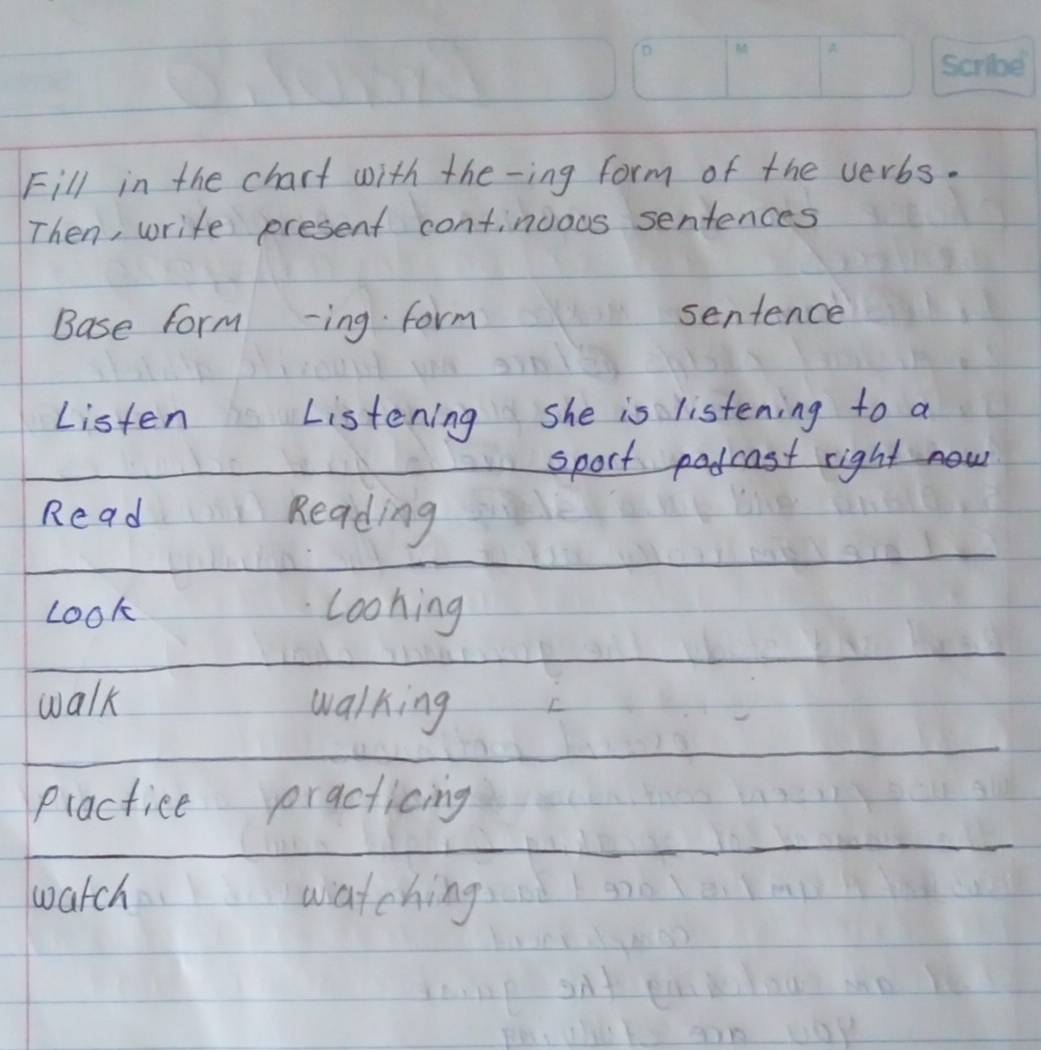 D M A Scribe
Fill in the chart with the -ing form of the verbs.
Then, write present continuous sentences
Base form -ing form sentence
Listen Listening she is listening to a
sport podcast right now
Read Reading
Look Looking
walk walking
Practice practicing
watch watching